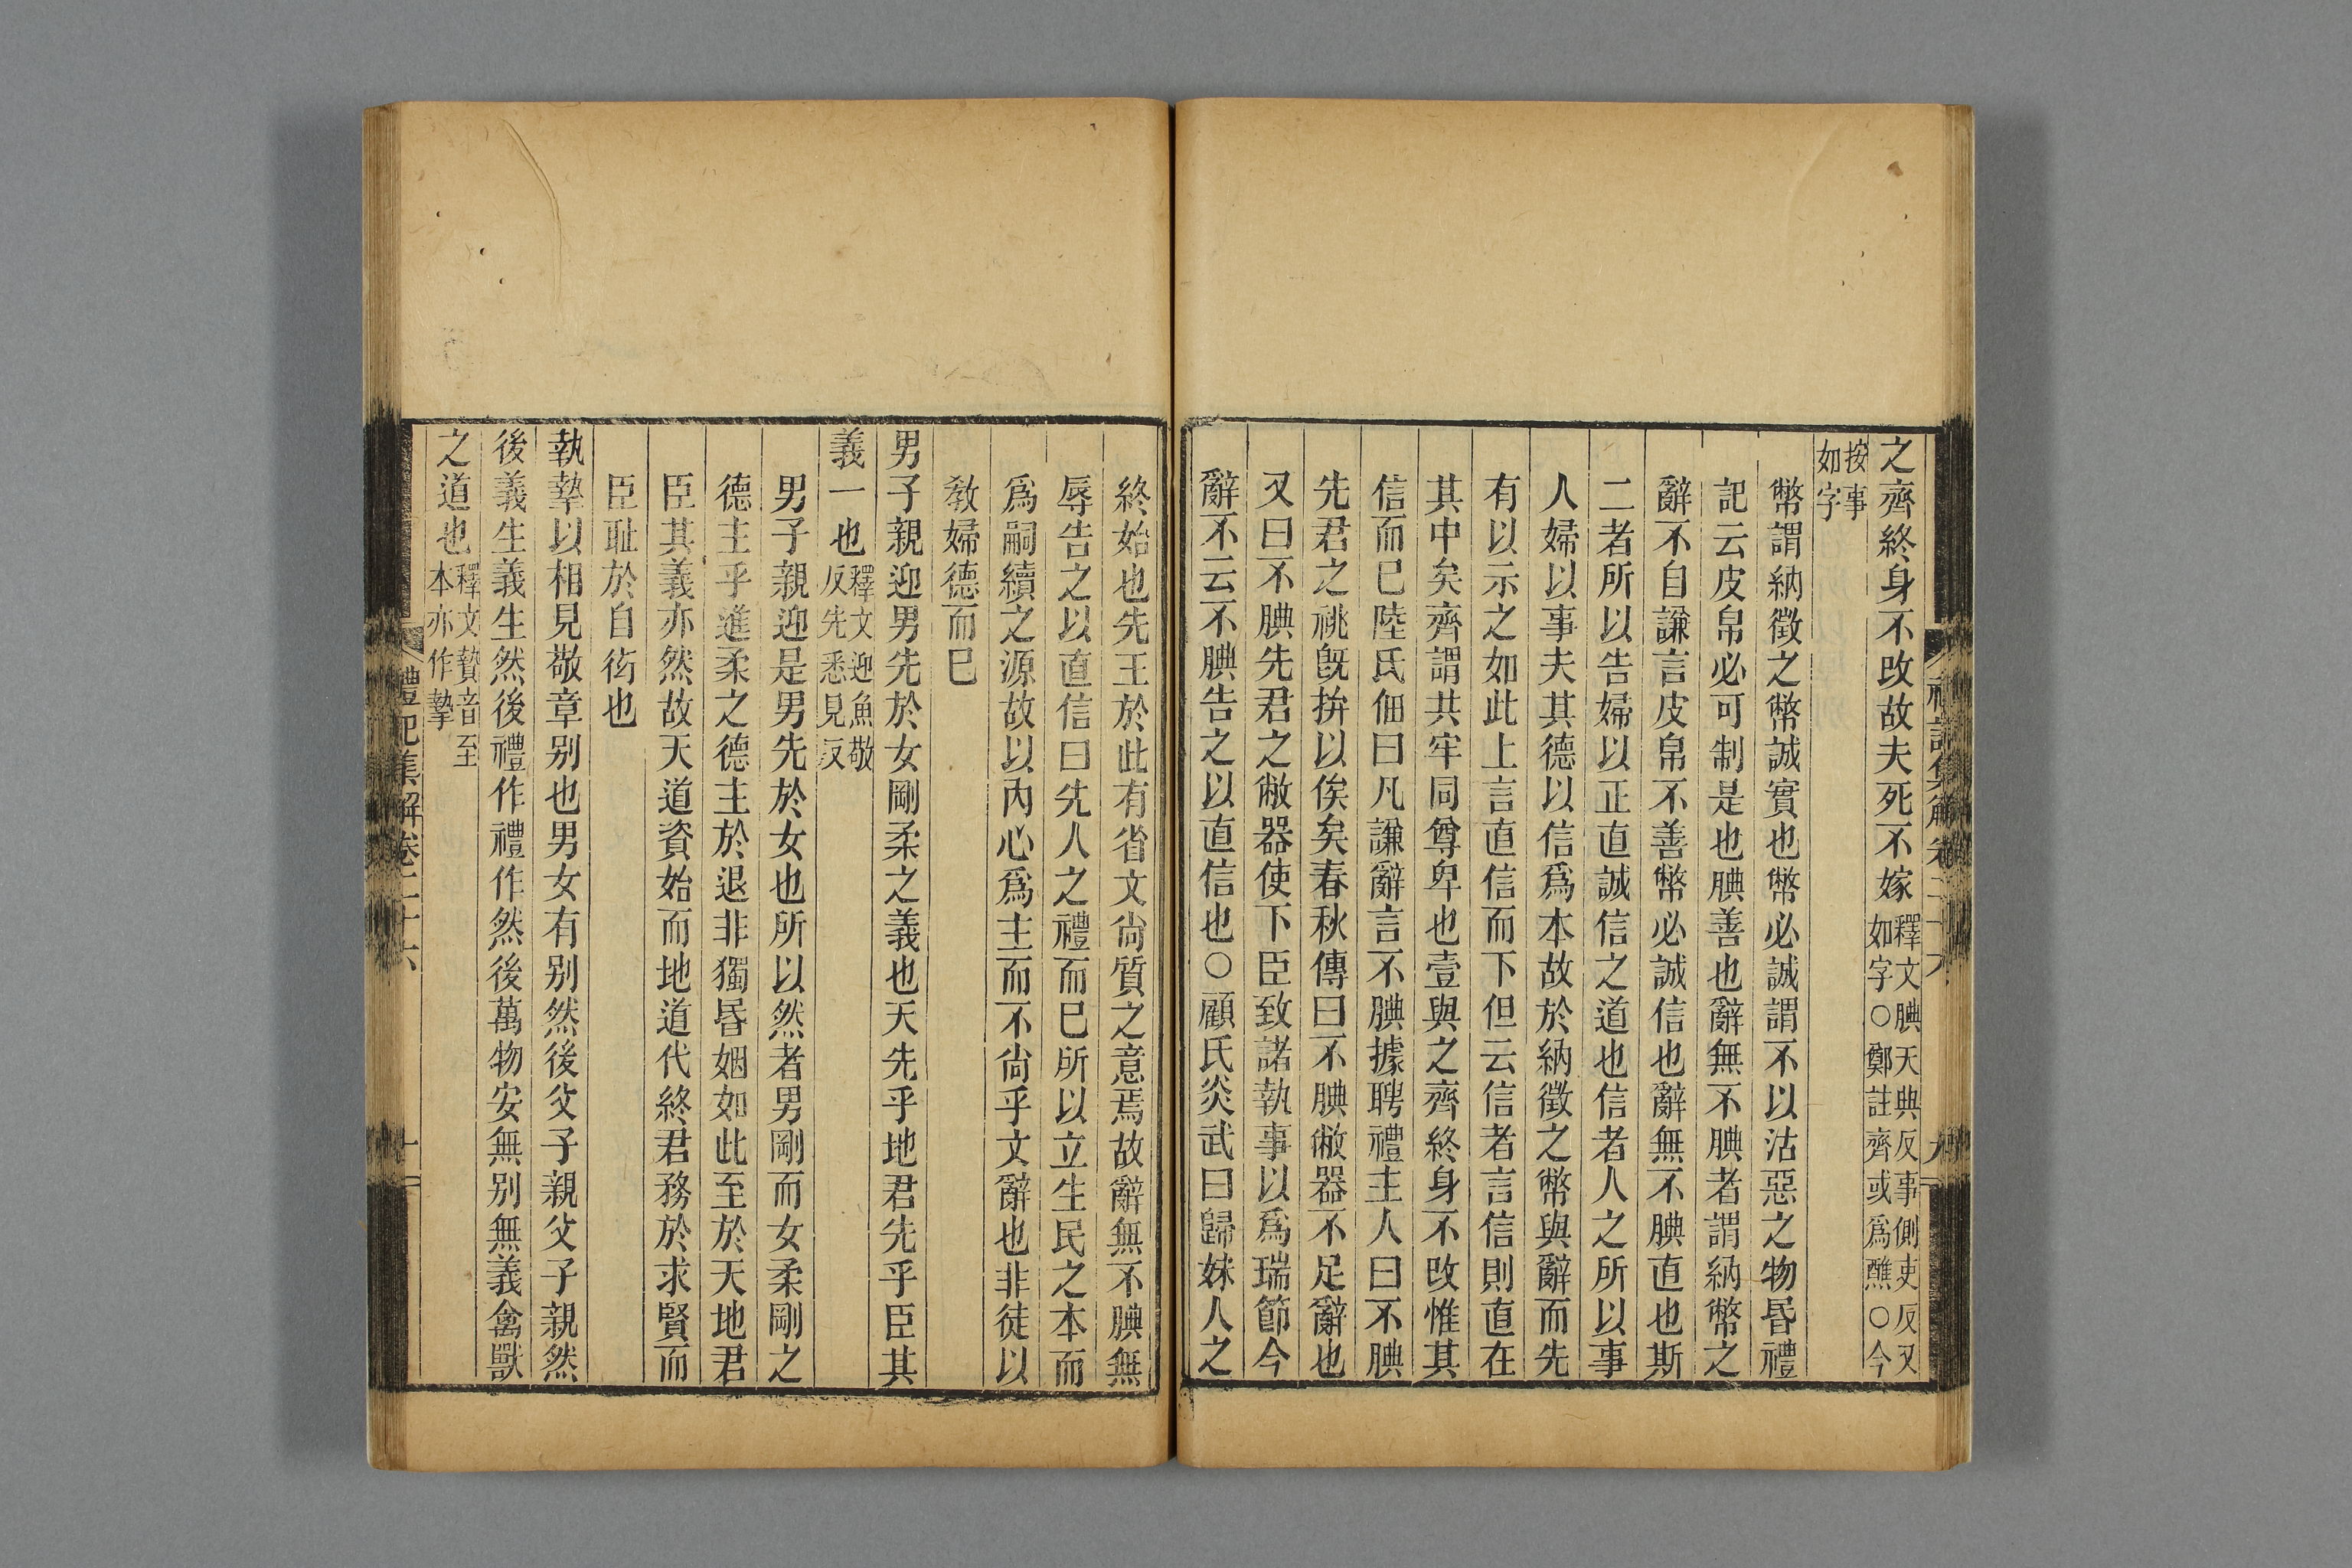 之齊終身不改故夫死不嫁釋文腆天典反事側吏反又如字○鄭註齊或爲醮○今
按事如字
幣謂納徵之幣誠實也幣必誠謂不以沽惡之物昏禮
記云皮帛必可制是也腆善也辭無不腆者謂納幣之
辭不自謙言皮帛不善幣必誠信也辭無不腆直也斯
二者所以告婦以正直誠信之道也信者人之所以事
人婦以事夫其德以信爲本故於納徵之幣與辭而先
有以示之如此上言直信而下但云信者言信則直在
其中矣齊謂共牢同尊卑也壹與之齊終身不改惟其
信而已陸氏佃曰凡謙辭言不腆據聘禮主人曰不腆
先君之祧旣拚以俟矣春秋傳曰不腆敝器不足辭也
又曰不腆先君之敝器使下臣致諸執事以爲瑞節今
辭不云不腆告之以直信也○顧氏炎武曰歸妹人之
終始也先王於此有省文尙質之意焉故辭無不腆無
辱告之以直信曰先人之禮而已所以立生民之本而
爲嗣續之源故以內心爲主而不尙乎文辭也非徒以
敎婦德而已
男子親迎男先於女剛柔之義也天先乎地君先乎臣其
義一也釋文迎魚敬反先悉見反
男子親迎是男先於女也所以然者男剛而女柔剛之
德主乎進柔之德主於退非獨昏姻如此至於天地君
臣其義亦然故天道資始而地道代終君務於求賢而
臣耻於自衒也
執摯以相見敬章别也男女有别然後父子親父子親然
後義生義生然後禮作禮作然後萬物安無别無義禽獸
之道也釋文贄音至本亦作摯
禮記集解卷二十六